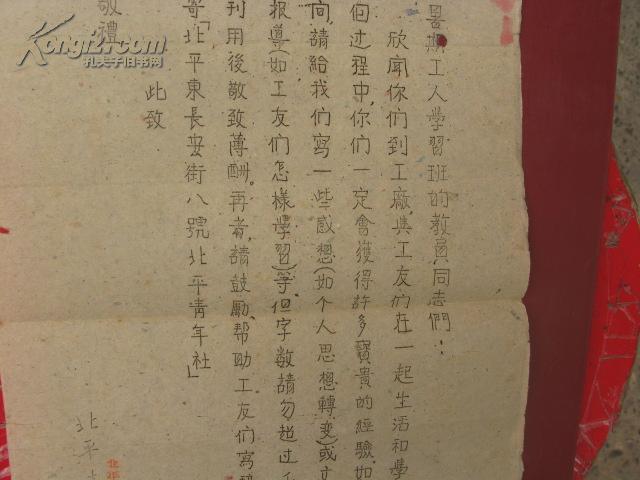 暑期工人學習班的教員同志們：
欣聞你们到工廠與工友们在一起生活和學
過程中,你们一定會獲得許多寶貴的經驗,如
向,請給我们寫一些感想(如个人思想轉變)或
报導(如工友们怎樣學習)等,但字數請勿超过
刊用後敬致薄酬。再者,請鼓勵、帮助工友们寫
寄「北平東長安街八號北平青年社」
此致
敬禮
北平
Kongfz.com
孔夫子旧书网